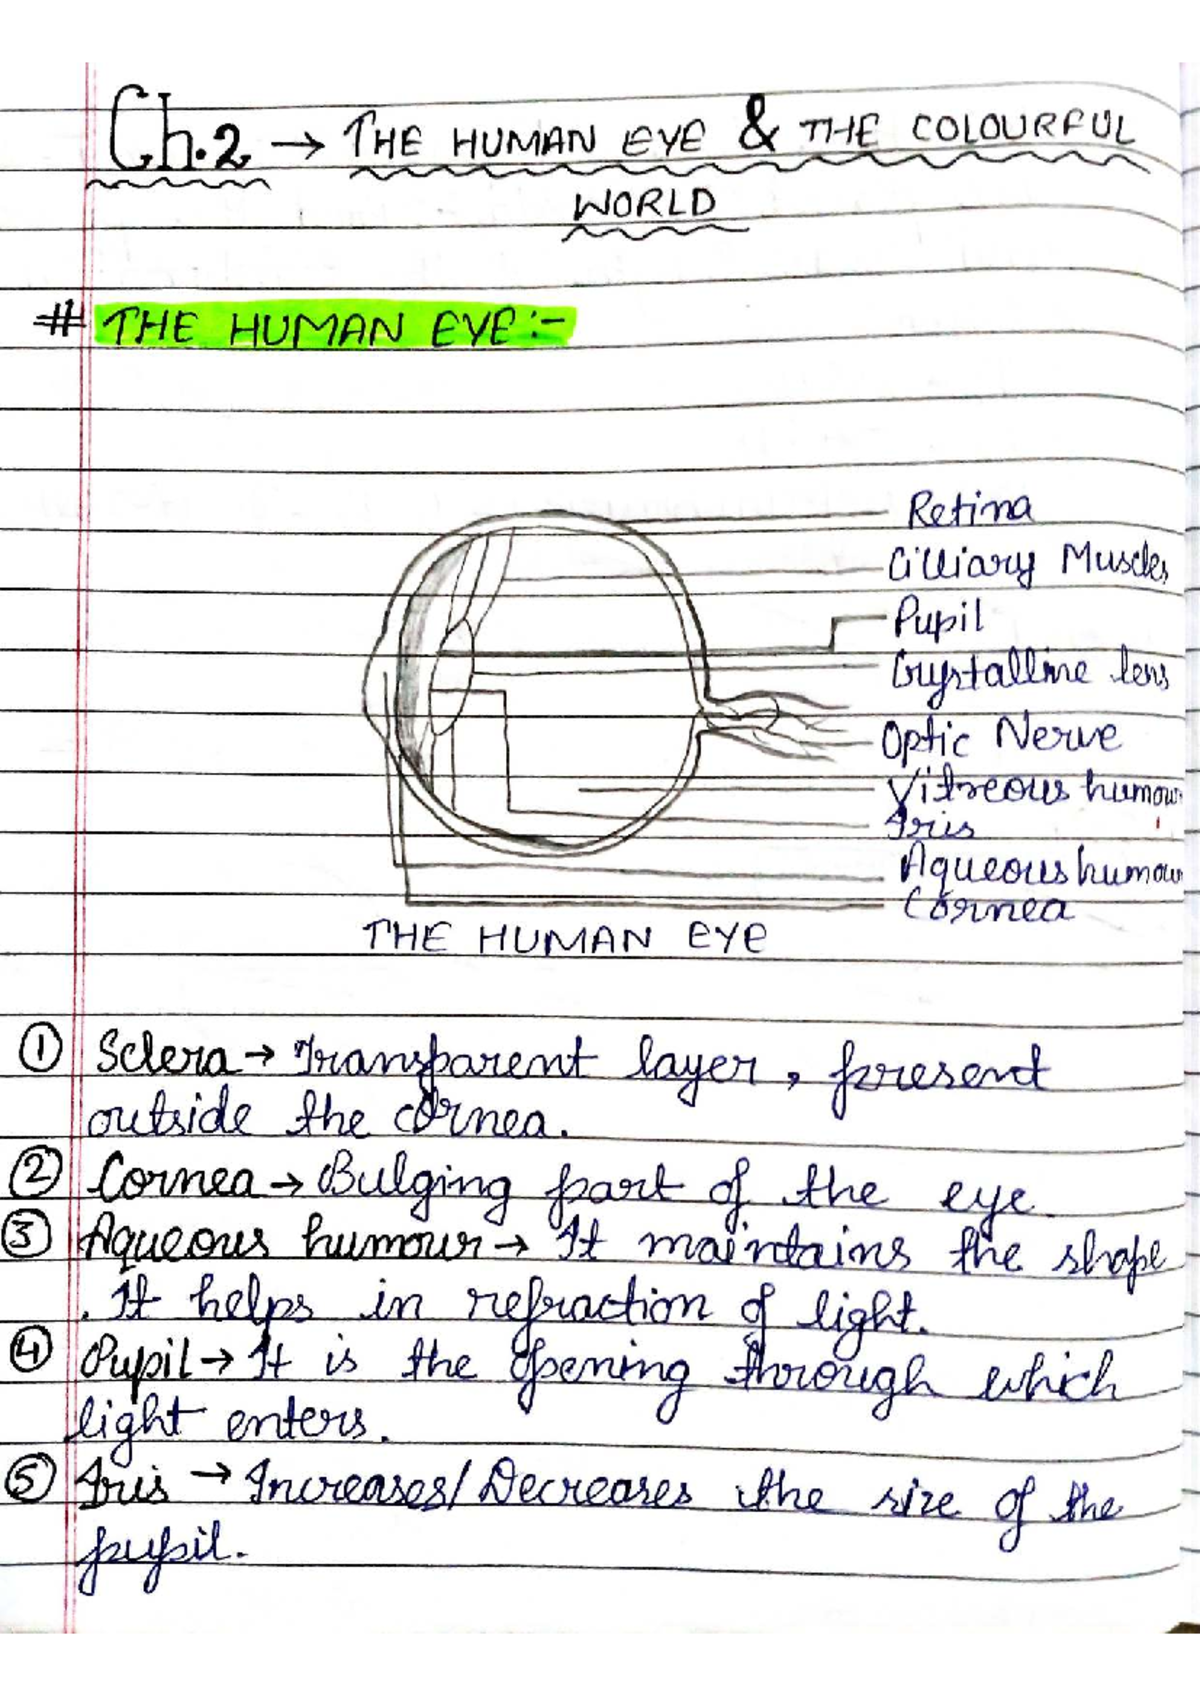 Ch.2 → THE HUMAN EYE & THE COLOURFUL
WORLD
# THE HUMAN EYE:-
Retina
Cilliary Muscles
Pupil
Crystalline lens
Optic Nerve
Vitreous humour
Iris
Aqueous humour
Cornea
THE HUMAN EYE
① Sclera → Transparent layer, present
outside the cornea.
② Cornea → Bulging part of the eye
③ Aqueous humour → It maintains the shape
. It helps in refraction of light.
④ Pupil → It is the opening through which
light enters.
⑤ Iris → Increases/Decreases the size of the
pupil.